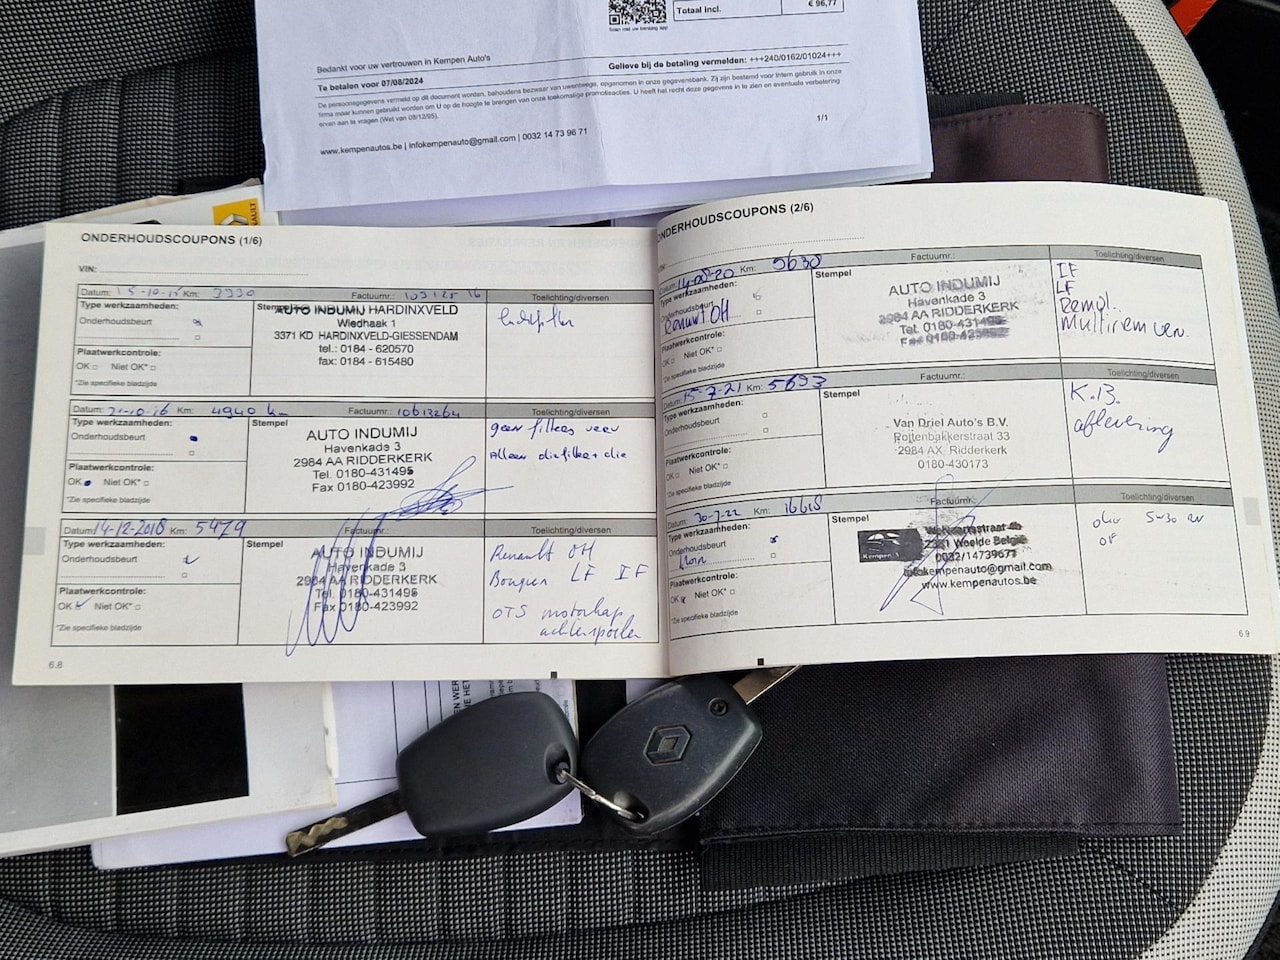 Totaal incl. € 96,77
Scan met uw banking app
Bedankt voor uw vertrouwen in Kempen Auto's
Te betalen voor 07/08/2024
Gelieve bij de betaling vermelden: +++240/0162/01024+++
De persoonsgegevens vermeld op dit document worden, behoudens bezwaar van uwentwege, opgenomen in onze gegevensbank. Zij zijn bestemd voor intern gebruik in onze
firma maar kunnen gebruikt worden om U op de hoogte te brengen van onze toekomstige promotieacties. U heeft het recht deze gegevens in te zien en eventuele verbetering
ervan aan te vragen (Wet van 08/12/95).
www.kempenautos.be | infokempenauto@gmail.com | 0032 14 73 96 71
1/1
ONDERHOUDSCOUPONS (1/6)
VIN:
Datum: 15-10-15 Km: 3330 Factuurnr.: Toelichting/diversen
Type werkzaamheden:
Onderhoudsbeurt
Plaatwerkcontrole:
OK Niet OK*
*Zie specifieke bladzijde
Stempel
AUTO INDUMIJ HARDINXVELD
Wiedhaak 1
3371 KD HARDINXVELD-GIESSENDAM
tel.: 0184 - 620570
fax: 0184 - 615480
Datum: 21-10-16 Km: 4940 km Factuurnr.: 10613264 Toelichting/diversen
Type werkzaamheden:
Onderhoudsbeurt
Plaatwerkcontrole:
OK Niet OK*
*Zie specifieke bladzijde
Stempel
AUTO INDUMIJ
Havenkade 3
2984 AA RIDDERKERK
Tel. 0180-431495
Fax 0180-423992
geen filters
Alleen oliefilter + olie
Datum: 14-12-2018 Km: 5479 Factuurnr.: Toelichting/diversen
Type werkzaamheden:
Onderhoudsbeurt
Plaatwerkcontrole:
OK Niet OK*
*Zie specifieke bladzijde
Stempel
AUTO INDUMIJ
Havenkade 3
2984 AA RIDDERKERK
Tel. 0180-431495
Fax 0180-423992
Renault OH
Bougies LF IF
OTS motorkap
achterspoiler
6.8
ONDERHOUDSCOUPONS (2/6)
VIN:
Datum: 14-08-20 Km: 5630 Factuurnr.: Toelichting/diversen
Type werkzaamheden:
Onderhoudsbeurt
Renault OH
Plaatwerkcontrole:
OK Niet OK*
*Zie specifieke bladzijde
Stempel
AUTO INDUMIJ
Havenkade 3
2984 AA RIDDERKERK
Tel. 0180-431495
Fax 0180-423992
IF
LF
Remvl.
Multiriem ver.
Datum: 15-7-21 Km: 5693 Factuurnr.: Toelichting/diversen
Type werkzaamheden:
Onderhoudsbeurt
Plaatwerkcontrole:
OK Niet OK*
*Zie specifieke bladzijde
Stempel
Van Driel Auto's B.V.
Pottenbakkerstraat 33
2984 AX Ridderkerk
0180-430173
K.B.
aflevering
Datum: 30-7-22 Km: 16618 Factuurnr.: Toelichting/diversen
Type werkzaamheden:
Onderhoudsbeurt
Klein
Plaatwerkcontrole:
OK Niet OK*
*Zie specifieke bladzijde
Stempel
Weelde België
0032/14739671
infokempenauto@gmail.com
www.kempenautos.be
olie 5W30 RN
OF
6.9